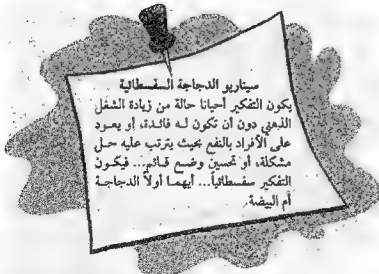 سيناريو الدجاجة السفسطائية
يكون التفكير أحيانا حالة من زيادة الشغل
الذهني دون أن تكون له فائدة، او يعود
على الأفراد بالنفع بحيث يترتب عليه حل
مشكلة، أو تحسين وضع قائم... فيكون
التفكير سفسطائياً... أيهما أولاً الدجاجة
أم البيضة.